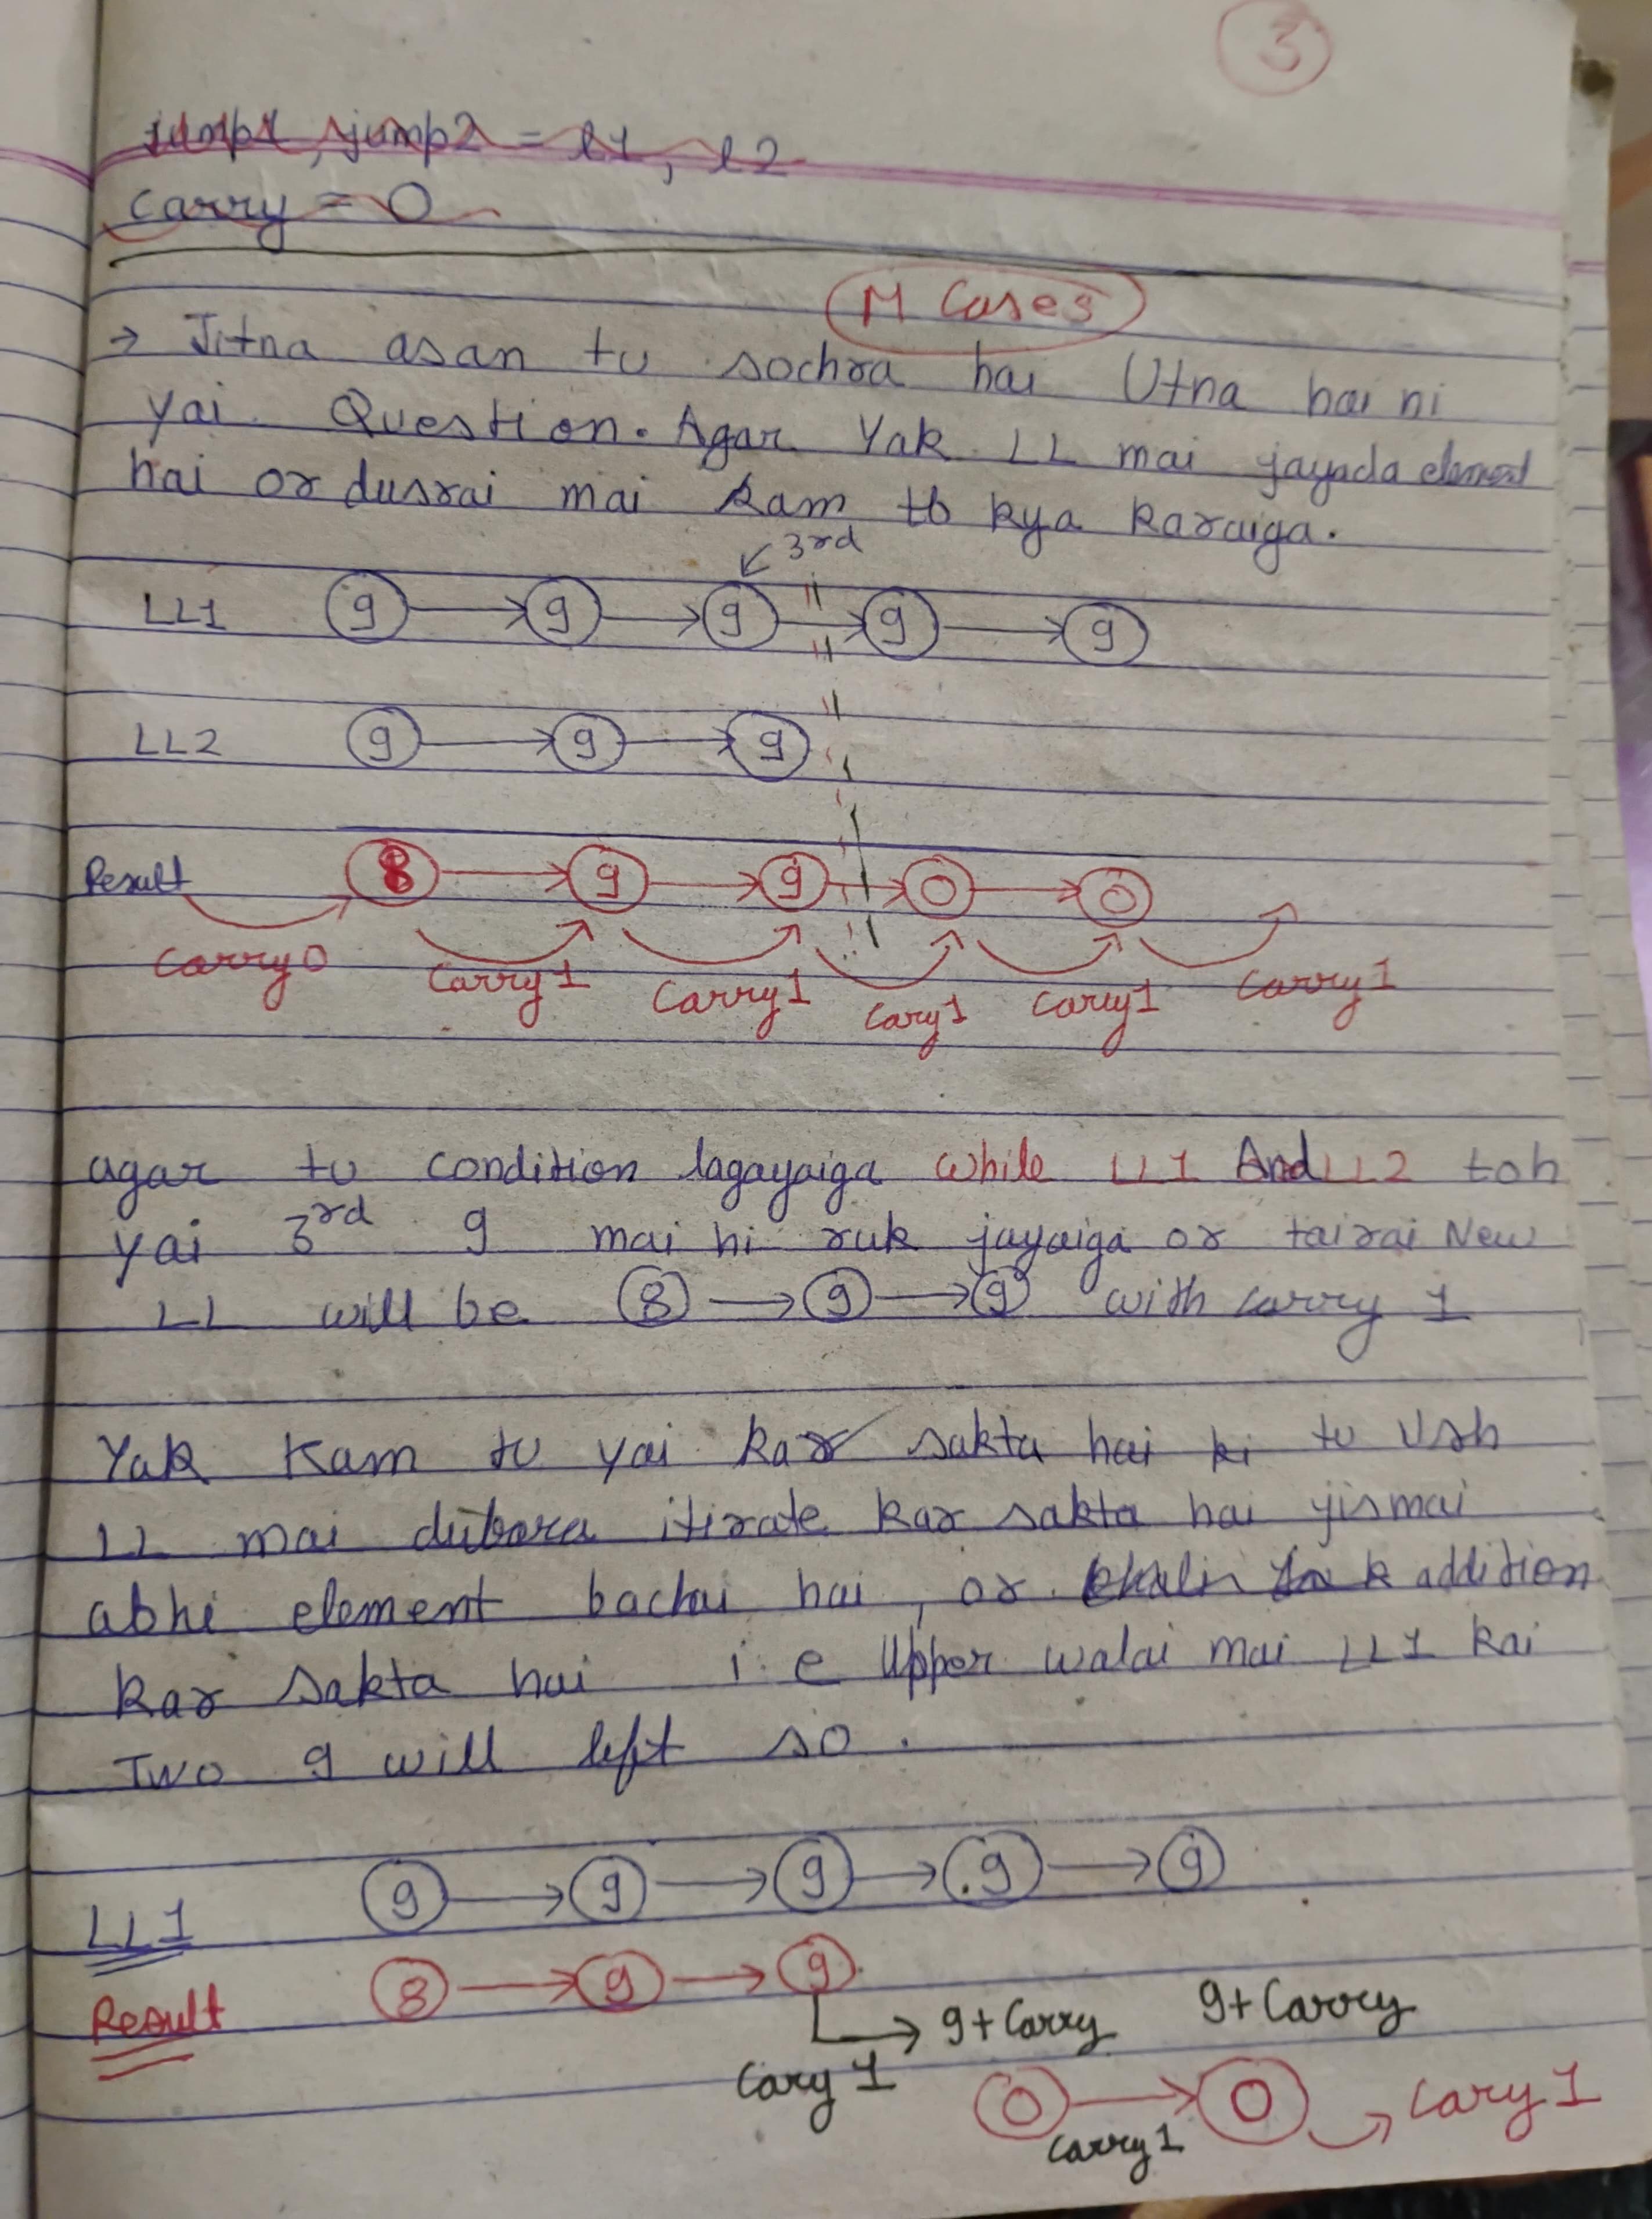 3
jump1, jump2 = l1, l2
carry = 0
M Cases
→ Jitna asan tu sochra hai Utna hai ni
yai Question. Agar Yak LL mai jayada element
hai or dusrai mai kam to kya karaiga.
3rd
LL1 9 → 9 → 9 → 9 → 9
LL2 9 → 9 → 9
Result 8 → 9 → 9 → 0 → 0
Carry0 Carry1 Carry1 Cary1 Cary1 Carry1
agar tu condition lagayaiga while LL1 And LL2 toh
yai 3rd 9 mai hi ruk jayaiga or tairai New
LL will be 8 → 9 → 9 with carry 1
Yak Kam tu yai kar sakta hai ki tu Ush
LL mai dubara itirate kar sakta hai jismai
abhi element bachai hai, or addition
kar sakta hai i.e Upper walai mai LL1 kai
Two 9 will left so.
LL1 9 → 9 → 9 → 9 → 9
Result 8 → 9 → 9
→ 9+Carry 9+Carry
Cary 1
0 → 0 → Cary 1
Carry1